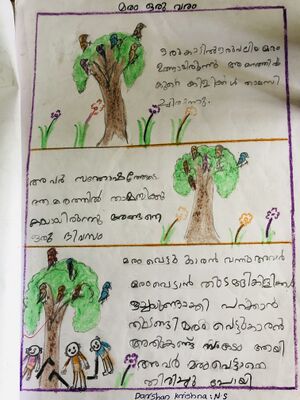 മരം ഒരു വരം
ഒരു കാട്ടിൽ ഒരു വലിയ മരം
ഉണ്ടായിരുന്നു ആ മരത്തിൽ
കുറെ കിളികൾ താമസി
ച്ചിരുന്നു.
അവർ സന്തോഷത്തോടെ
ആ മരത്തിൽ താമസിക്കു
കയായിരുന്നു അങ്ങനെ
ഒരു ദിവസം
മരം വെട്ടു കാരൻ വന്നു അവർ
മരം വെട്ടാൻ തുടങ്ങി കിളികൾ
ഒച്ചയുണ്ടാക്കി പറക്കാൻ
തുടങ്ങി മരം വെട്ടുകാരൻ
അതിക്കണ്ട് സങ്കടം ആയി
അവർ മരം വെട്ടാതെ
തിരിച്ചു പോയി
Darshan Krishna.N.S